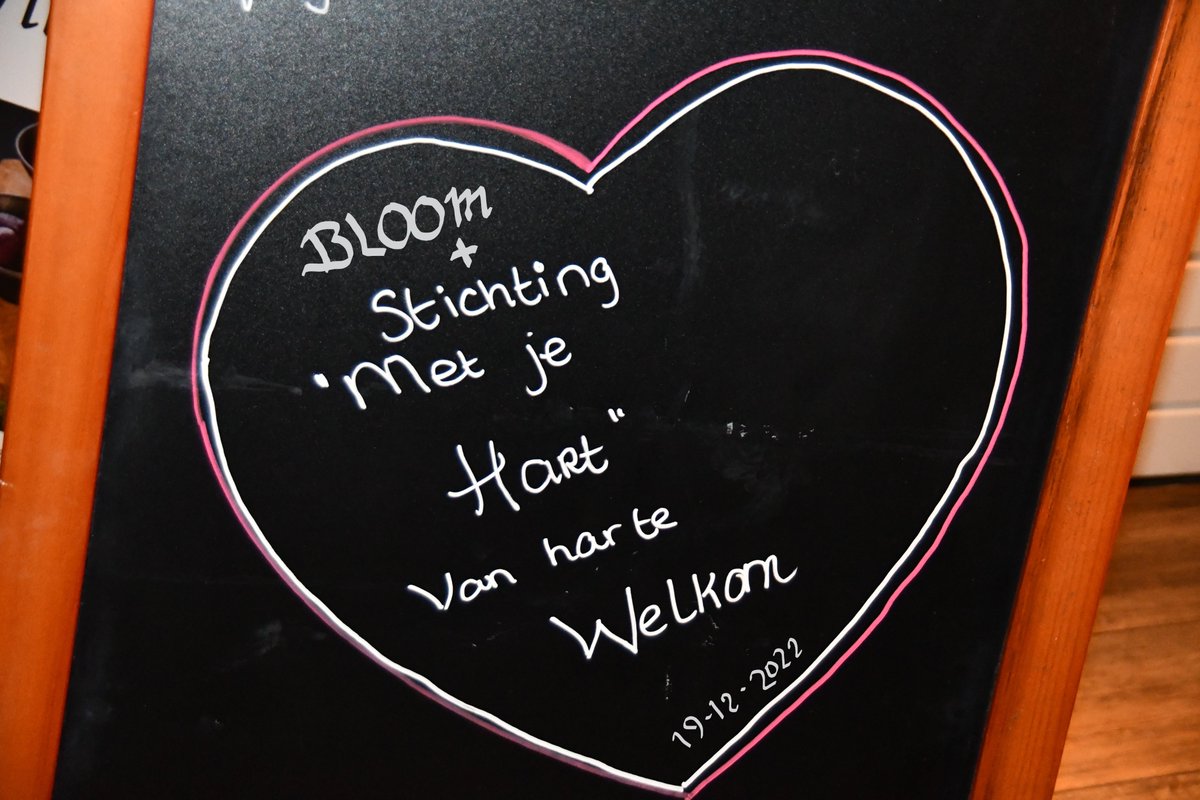 BLOOM
+
Stichting
"Met je
Hart"
van harte
Welkom
19-12-2022